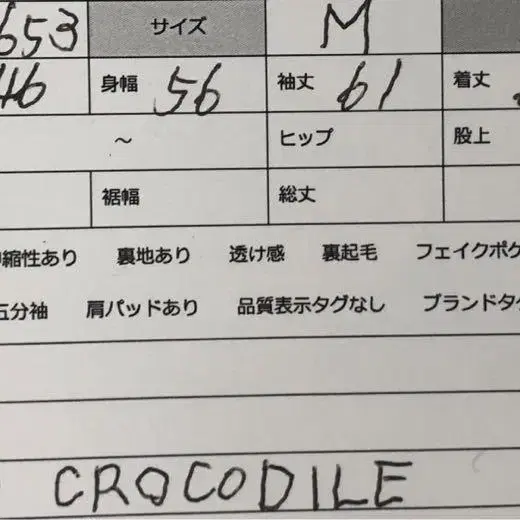 653 サイズ M
46 身幅 56 袖丈 61 着丈
～ ヒップ 股上
裾幅 総丈
縮性あり 裏地あり 透け感 裏起毛 フェイクポケ
五分袖 肩パッドあり 品質表示タグなし ブランドタ
CROCODILE